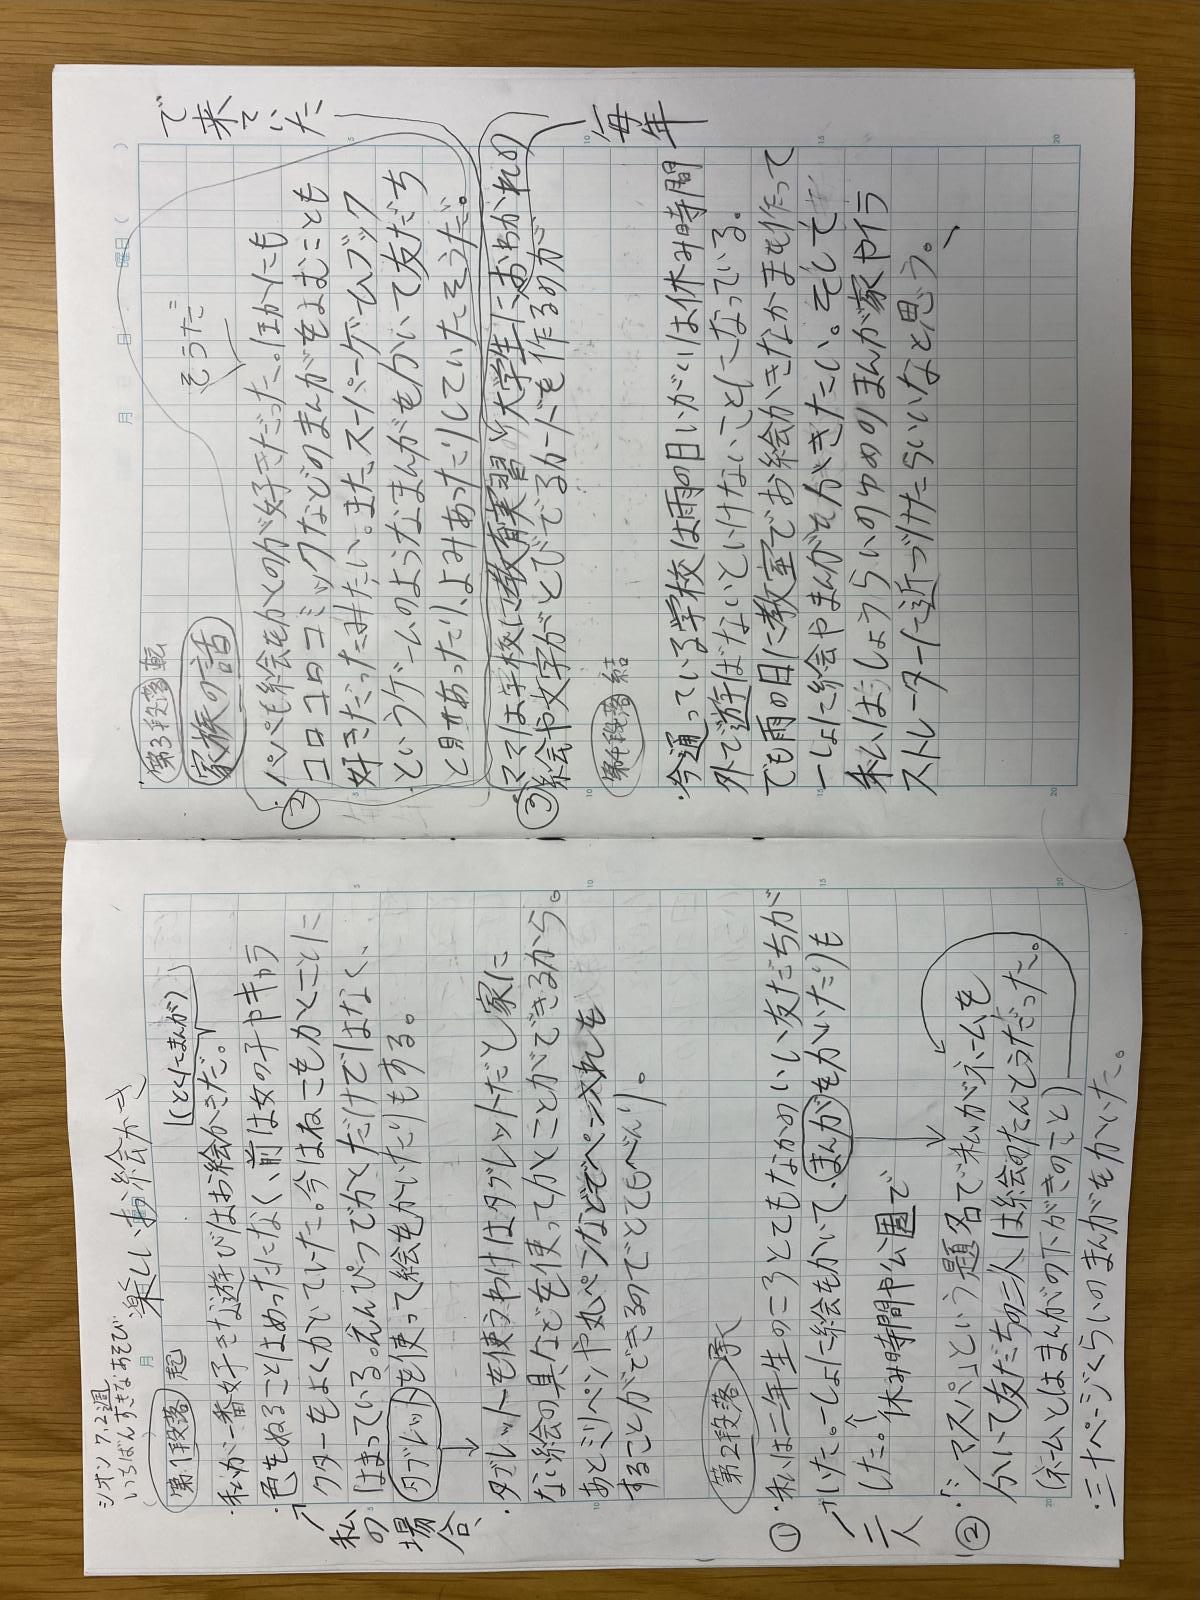 シオン 7.2週
いちばんすきなあそび
楽しいお絵かき
第1段落 起
(とくにまんが)
・私が一番好きな遊びはお絵かきだ。
・色をぬることはめったになく、前は女の子やキャラ
クターをよくかいていた。今はねこをかくことに
はまっている。えんぴつでかくだけではなく、
タブレットを使って絵をかいたりもする。
私の場合、
・タブレットを使うわけはタブレットだと家に
ない絵の具などを使ってかくことができるから。
あとミリペンや丸ペンなどでペン入れを
することができるのでとてもべんり。
第2段落 承
①・私は二年生のころとてもなかのいい友だちが
いた。いっしょに絵をかいて、まんがをかいたりも
した。休み時間や公園で
二人
②・「シマスパ」という題名で私がネームを
かいて友だちの二人は絵のたんとうだった。
(ネームとはまんがの下がきのこと)
・三十ページくらいのまんがをかいた。
月 日 曜日
第3段落 転
家族の話
そうだ
②・パパも絵をかくのが好きだった。ほかにも
コロコロコミックなどのまんがをよむことも
好きだったみたい。またスーパーゲームブック
というゲームのようなまんがをかいて友だち
と見せあったり、よみあったりしていたそうだ。
③・ママは学校に教育実習で大学生におわかれの
絵や文字がとびでるカードを作るのが
で来ていた
毎年
第4段落 結
・今通っている学校は雨の日いがいは休み時間
外で遊ばないといけないことになっている。
でも雨の日に教室でお絵かきなかまを作って
いっしょに絵やまんがをかきたい。そして
私はしょうらいのゆめのまんが家やイラ
ストレーターに近づけたらいいなと思う。